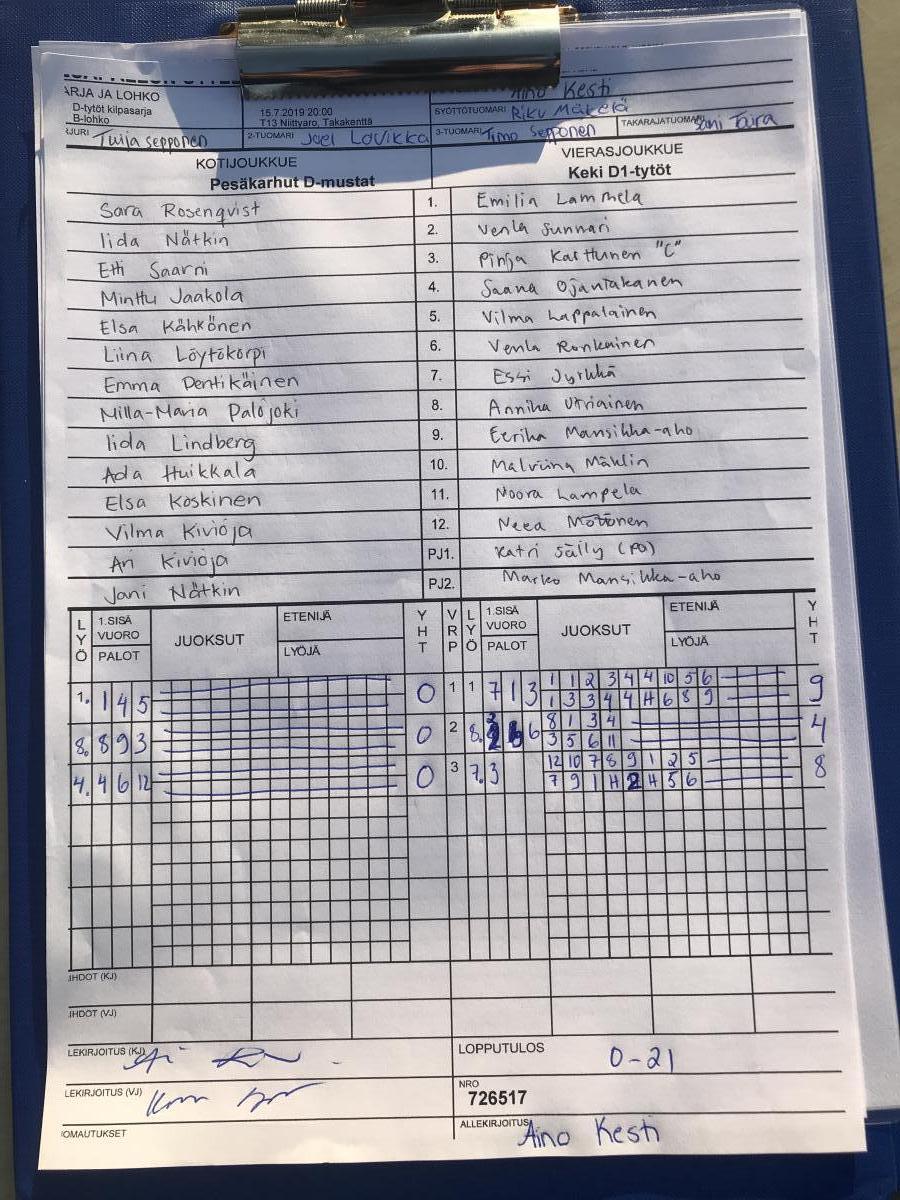 ARJA JA LOHKO
Aino Kesti
D-tytöt kilpasarja
B-lohko
15.7.2019 20:00
T13 Niittyaro, Takakenttä
SYÖTTÖTUOMARI Riku Mäkelä
Tuija Sepponen
2-TUOMARI Joel Lovikka
3-TUOMARI Timo Sepponen
TAKARAJATUOMARI Taira
KOTIJOUKKUE VIERASJOUKKUE
Pesäkarhut D-mustat Keki D1-tytöt
Sara Rosenqvist 1. Emilia Lammela
Iida Nätkin 2. Venla Sunnari
Etti Saarni 3. Pinja Karttunen "C"
Minttu Jaakola 4. Saana Ojantakanen
Elsa Kähkönen 5. Vilma Lappalainen
Liina Löytökorpi 6. Venla Ronkainen
Emma Pentikäinen 7. Essi Jyrkkä
Milla-Maria Palojoki 8. Annika Utriainen
Iida Lindberg 9. Eerika Mansikka-aho
Ada Huikkala 10. Malviina Mählin
Elsa Koskinen 11. Noora Lampela
Vilma Kivioja 12. Neea Möttönen
Ari Kivioja PJ1. Katri Säily (PO)
Jani Nätkin PJ2. Marko Mansikka-aho
LYÖ 1.SISÄ VUORO PALOT JUOKSUT ETENIJÄ LYÖJÄ YHT VRP LYÖ 1.SISÄ VUORO PALOT JUOKSUT ETENIJÄ LYÖJÄ YHT
1. 1 4 5 0 1 1 7 1 3 1 1 2 3 4 4 10 5 6 9
1 3 3 4 4 H 6 8 9
8. 8 9 3 0 2 8. 6 8 1 3 4 4
3 5 6 11
4. 4 6 12 0 3 7. 3 12 10 7 8 9 1 2 5 8
7 9 1 H 2 H 5 6
IHDOT (KJ)
IHDOT (VJ)
LEKIRJOITUS (KJ)
LOPPUTULOS 0-21
LEKIRJOITUS (VJ)
NRO
726517
OMAUTUKSET
ALLEKIRJOITUS Aino Kesti